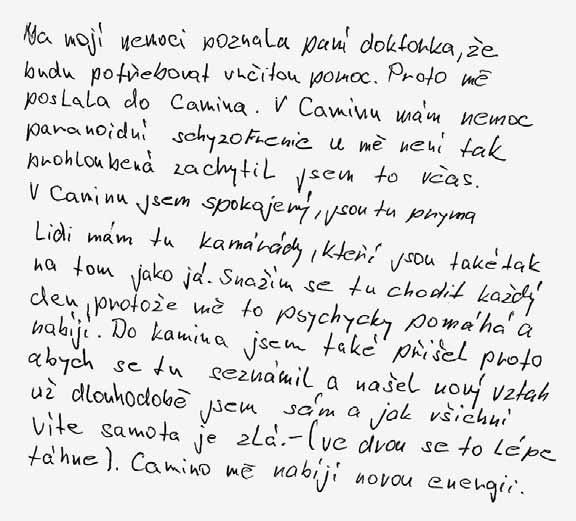 Na mojí nemoci poznala paní doktorka, že
budu potřebovat určitou pomoc. Proto mě
poslala do Camina. V Caminu mám nemoc
paranoidní schyzofrenie u mě není tak
prohloubená zachytil jsem to včas.
V Caminu jsem spokojený, jsou tu pryma
Lidi mám tu kamárády, kteří jsou také tak
na tom jako já. Snažím se tu chodit každý
den, protože mě to psychycky pomáhá a
nabíjí. Do kamina jsem také přišel proto
abych se tu seznámil a našel nový vztah
už dlouhodobě jsem sám a jak všichni
víte samota je zlá.-(ve dvou se to lépe
táhne). Camino mě nabíjí novou energii.